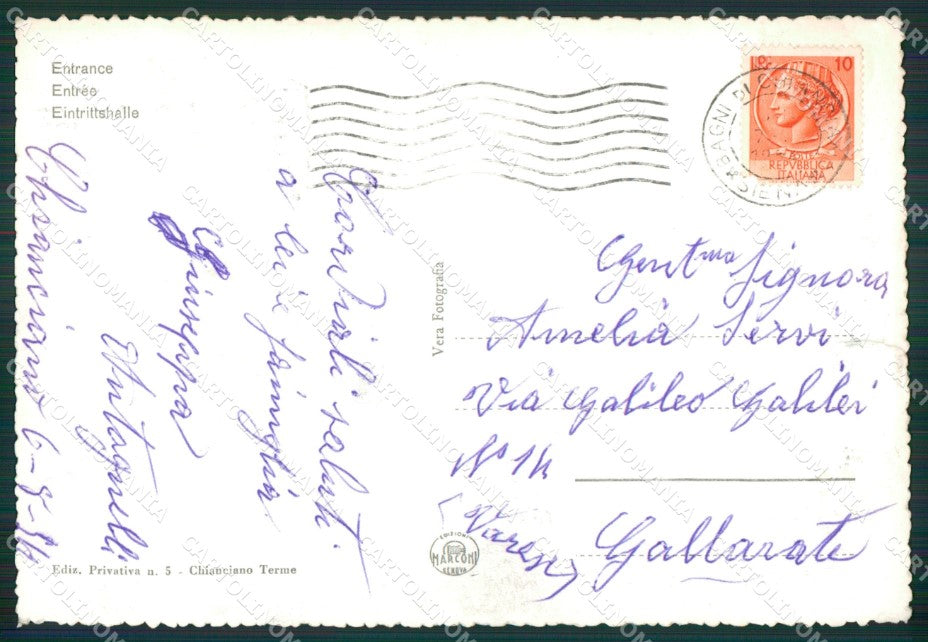 Entrance
Entrée
Eintrittshalle
Chianciano 6-8-54
Cordiali saluti.
a lei e famiglia
Giuseppa
Antagnelli
Ediz. Privativa n. 5 - Chianciano Terme
Vera Fotografia
EDIZIONI
MARCONI
GENOVA
10
REPVBBLICA
ITALIANA
BAGNI DI CHIANCIANO
SIENA
Gent.ma Signora
Amelia Servi
Via Galileo Galilei
N° 14
Gallarate
(Varese)
CARTOLINOMANIA